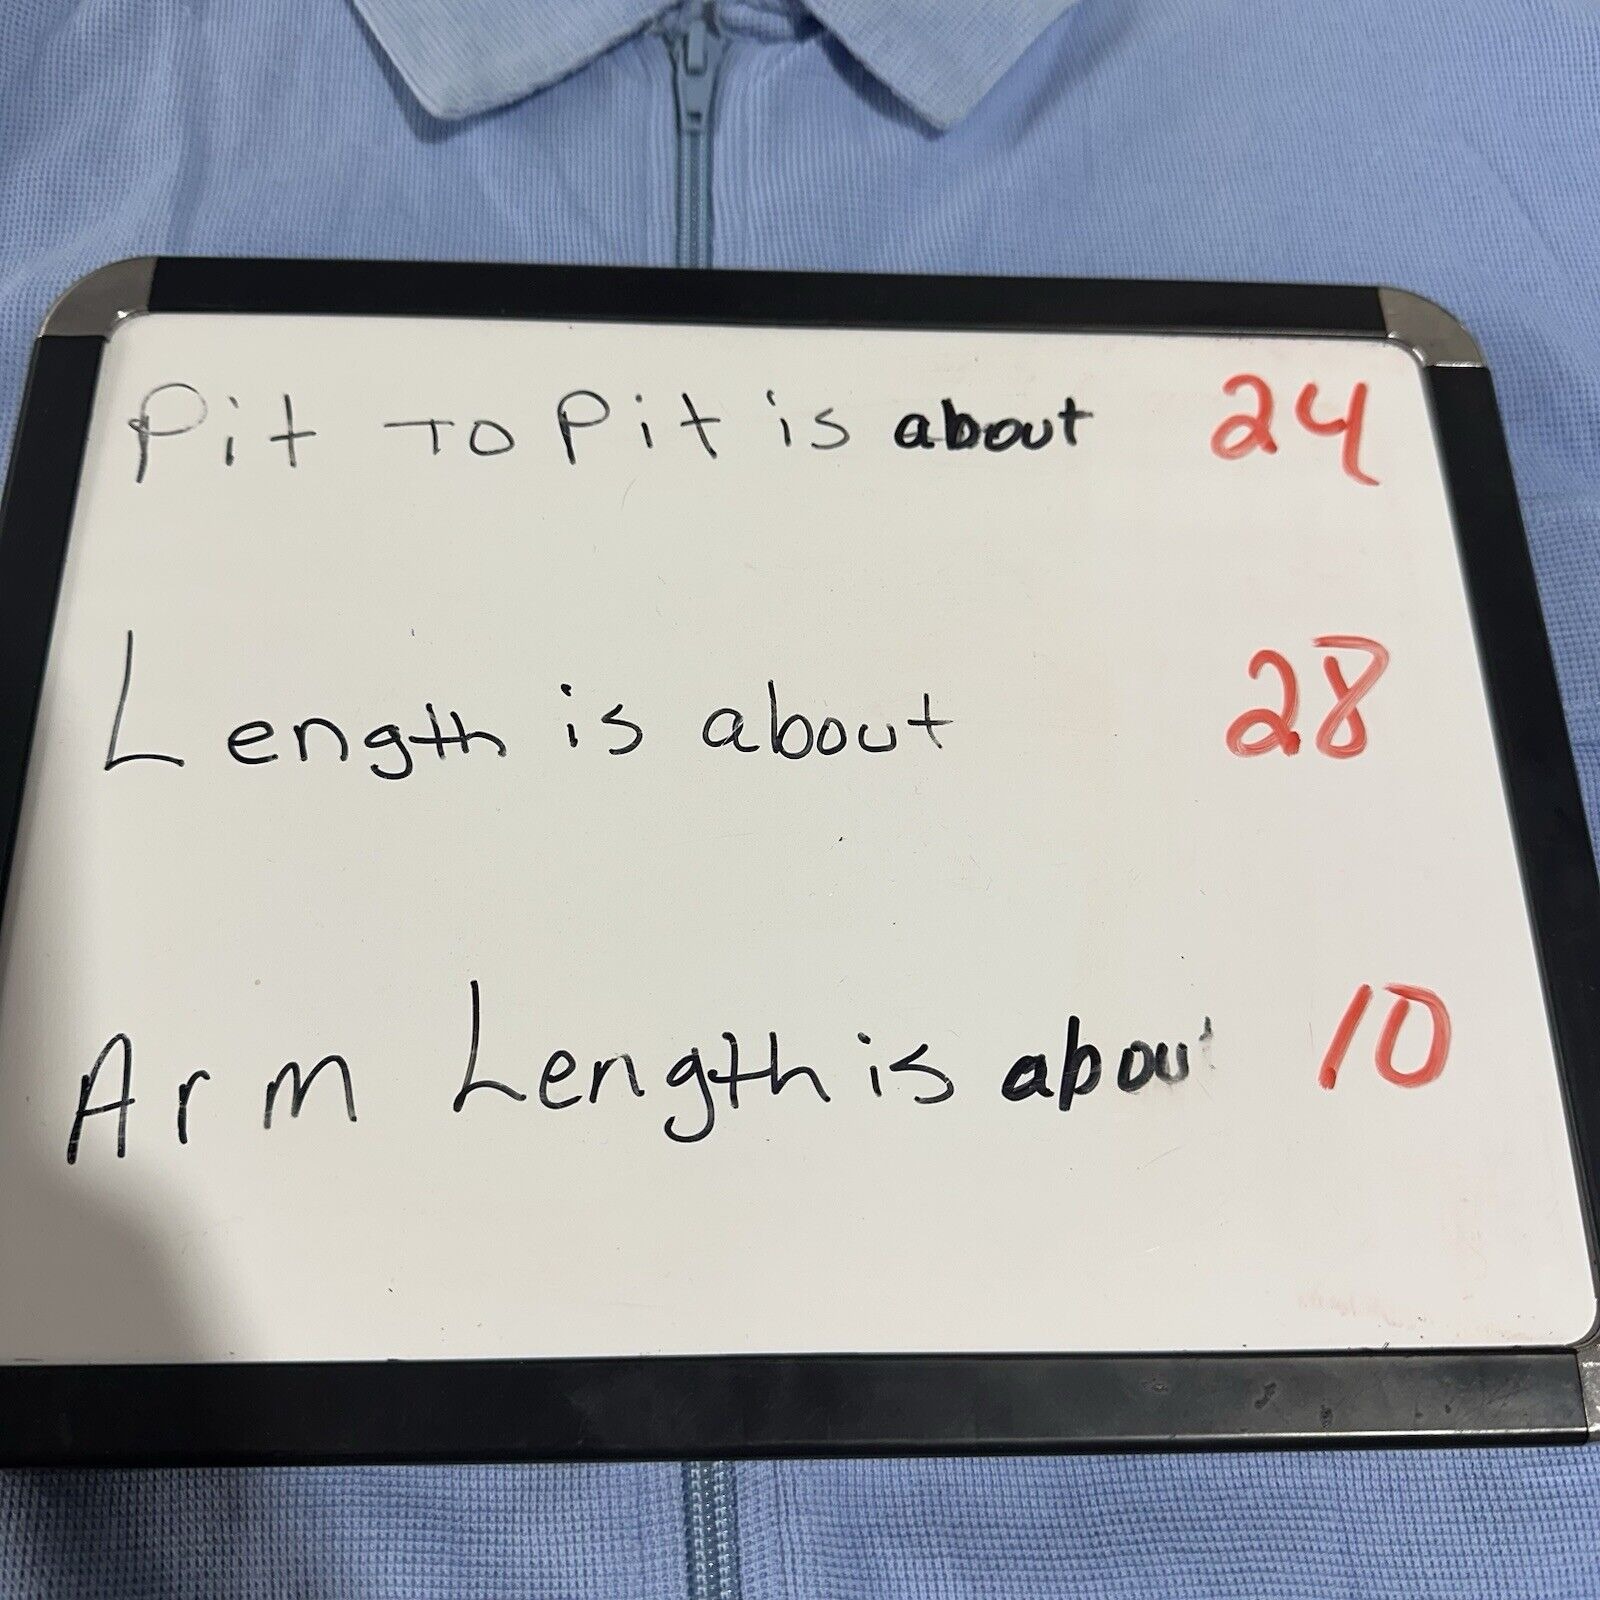 Pit To Pit is about 24
Length is about 28
Arm Length is about 10